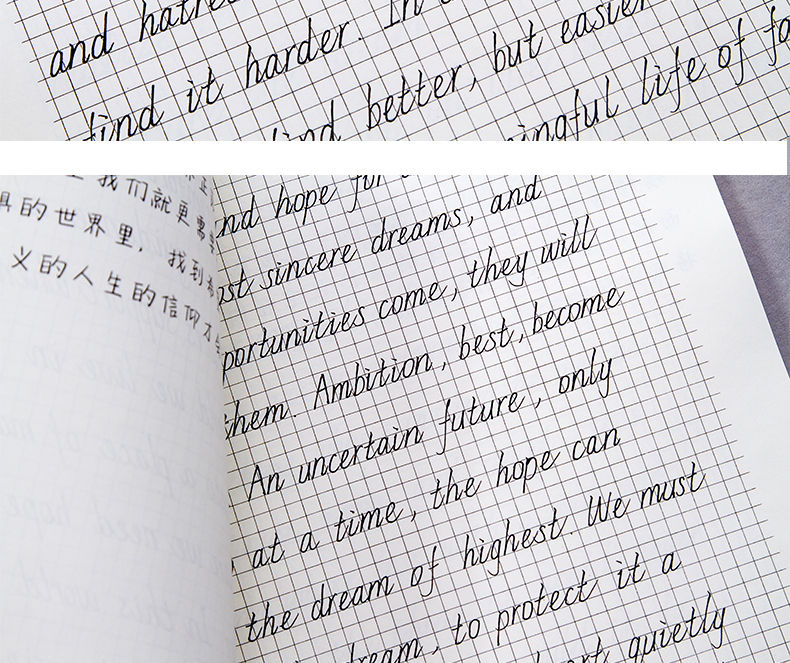 and
find it harder. In
find better, but easier
life of
我们就更需
的世界里，找到
义的人生的信仰才
and hope for
sincere dreams, and
come, they will
them. Ambition, best, become
An uncertain future, only
at a time, the hope can
the dream of highest. We must
dream, to protect it a
quietly